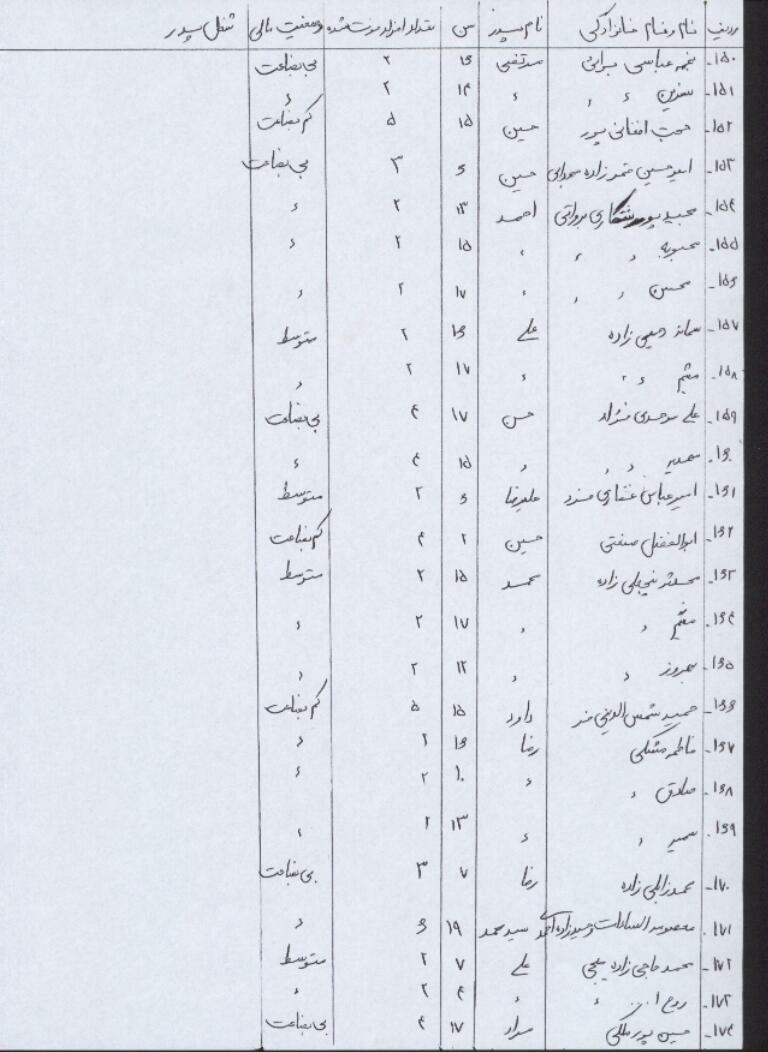 ردیف نام و نام خانوادگی نام پدر سن تعداد افراد فوت شده وضعیت مالی شغل پدر
۱۵۰- نجمه عباسی مرتضی ۱۶ ۲ بی بضاعت
۱۵۱- نسرین ״ ״ ״ ۱۴ ۲ ״
۱۵۲- محب افغانی پور حسین ۱۵ ۵ کم بضاعت
۱۵۳- امیرحسین زاده حسین ۶ ۳ بی بضاعت
۱۵۴- مجید احمد ۱۳ ۲ ״
۱۵۵- محبوبه ״ ״ ״ ۱۵ ۲ ״
۱۵۶- محسن ״ ״ ״ ۱۷ ۲ ״
۱۵۷- سمانه زاده علی ۱۶ ۲ متوسط
۱۵۸- میثم ״ ״ ״ ۱۷ ۲ ״
۱۵۹- علی حسن ۱۷ ۴ بی بضاعت
۱۶۰- ״ ״ ״ ۱۵ ۴ ״
۱۶۱- امیرعباس غفاری علیرضا ۶ ۲ متوسط
۱۶۲- ابوالفضل صنعتی حسین ۲ ۴ کم بضاعت
۱۶۳- زاده محمد ۱۵ ۲ متوسط
۱۶۴- میثم ״ ״ ۱۷ ۲ ״
۱۶۵- بهروز ״ ״ ۱۲ ۲ ״
۱۶۶- حمید شمس الدینی داود ۱۵ ۵ کم بضاعت
۱۶۷- فاطمه مشکی رضا ۱۶ ۲ ״
۱۶۸- صادق ״ ״ ۱۰ ۲ ״
۱۶۹- سمیر ״ ״ ۱۳ ۲ ״
۱۷۰- محمد زاده رضا ۷ ۳ بی بضاعت
۱۷۱- معصومه السادات سید محمد ۱۹ ۶ ״
۱۷۲- محمد حاجی زاده علی ۷ ۲ متوسط
۱۷۳- روح ا... ״ ״ ۴ ۲ ״
۱۷۴- حسین پور ملکی مراد ۱۷ ۴ بی بضاعت